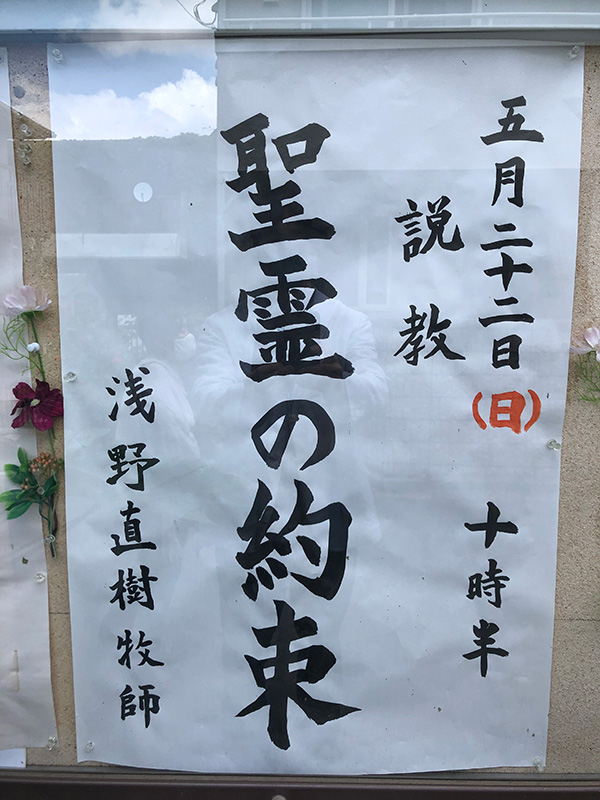 五月二十二日(日) 十時半
説教
聖霊の約束
浅野直樹牧師